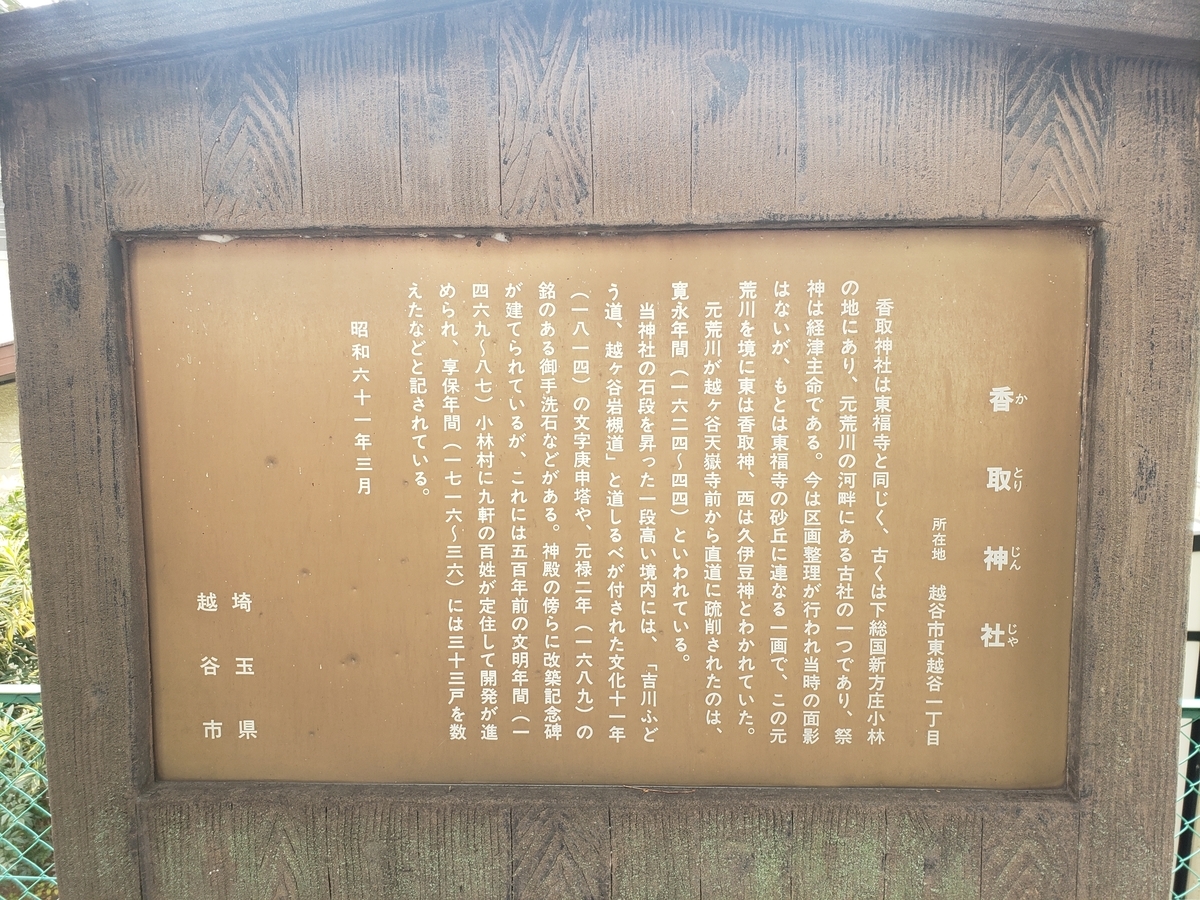 香取神社
かとりじんじゃ
所在地 越谷市東越谷一丁目
香取神社は東福寺と同じく、古くは下総国新方庄小林
の地にあり、元荒川の河畔にある古社の一つであり、祭
神は経津主命である。今は区画整理が行われ当時の面影
はないが、もとは東福寺の砂丘に連なる一画で、この元
荒川を境に東は香取神、西は久伊豆神とわかれていた。
元荒川が越ヶ谷天嶽寺前から直道に疏削されたのは、
寛永年間（一六二四〜四四）といわれている。
当神社の石段を昇った一段高い境内には、「吉川ふど
う道、越ヶ谷岩槻道」と道しるべが付された文化十一年
（一八一四）の文字庚申塔や、元禄二年（一六八九）の
銘のある御手洗石などがある。神殿の傍らに改築記念碑
が建てられているが、これには五百年前の文明年間（一
四六九〜八七）小林村に九軒の百姓が定住して開発が進
められ、享保年間（一七一六〜三六）には三十三戸を数
えたなどと記されている。
昭和六十一年三月
埼玉県
越谷市